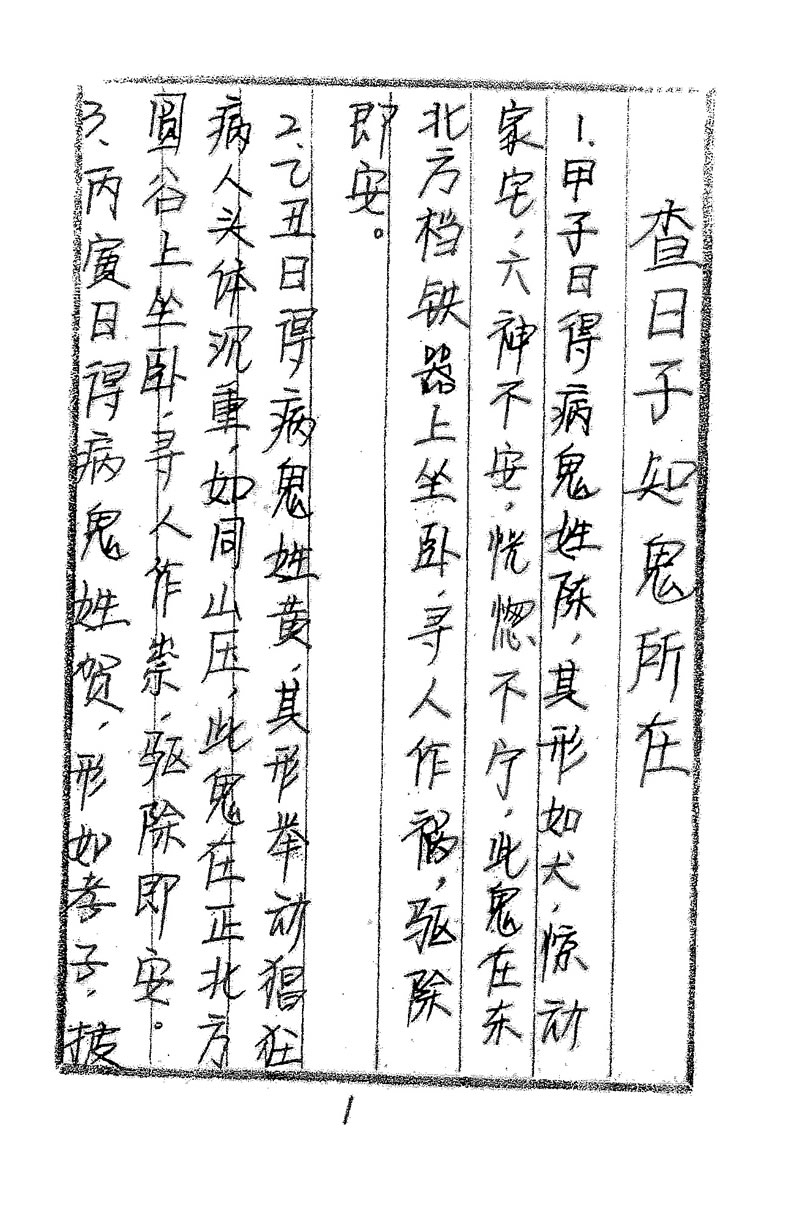 查日子知鬼所在
1.甲子日得病鬼姓陈，其形如犬，惊动
家宅，六神不安，恍惚不宁，此鬼在东
北方档铁器上坐卧，寻人作祸，驱除
即安。
2、乙丑日得病鬼姓黄，其形举动猖狂
病人头体沉重，如同山压，此鬼在正北方
圆谷上坐卧，寻人作祟，驱除即安。
3、丙寅日得病鬼姓贺，形如孝子，披
1